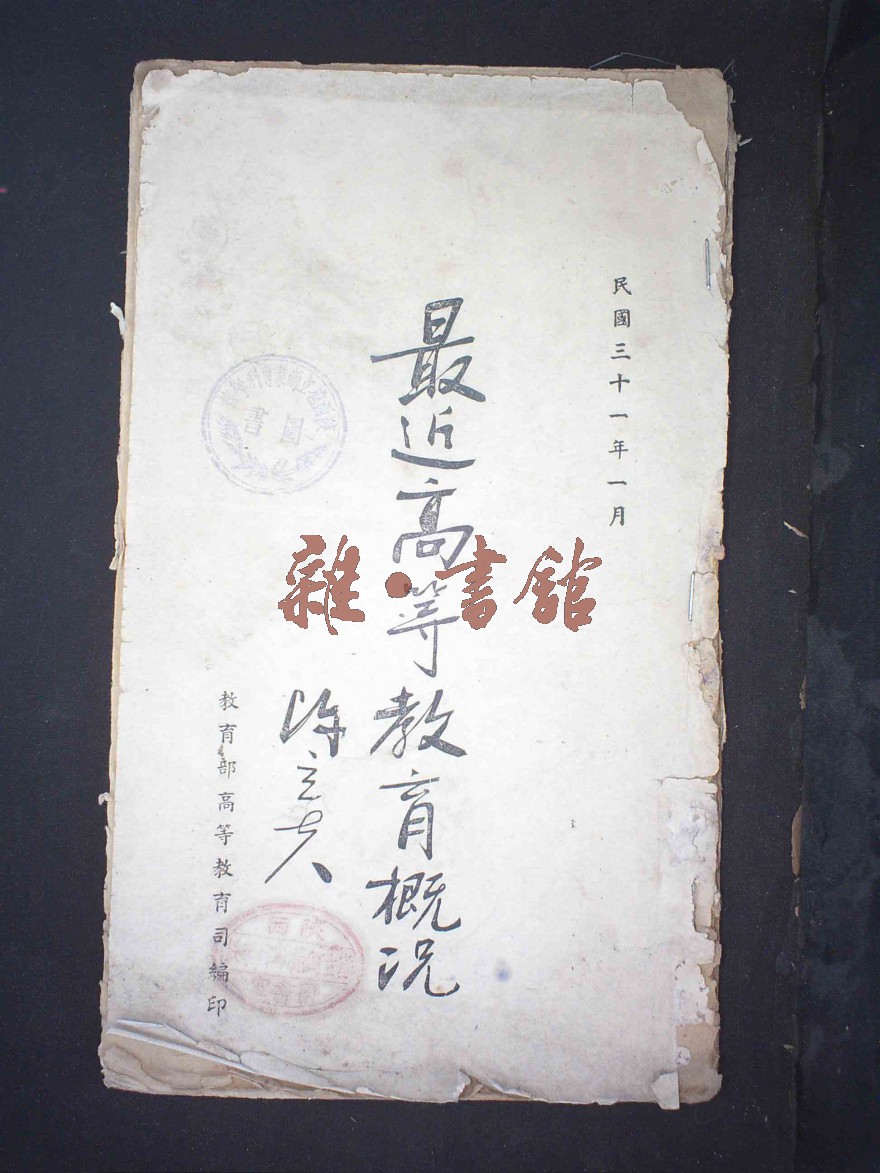 民國三十一年一月
最近高等教育概況
陳立夫
教育部高等教育司編印
圖書
雜·書館